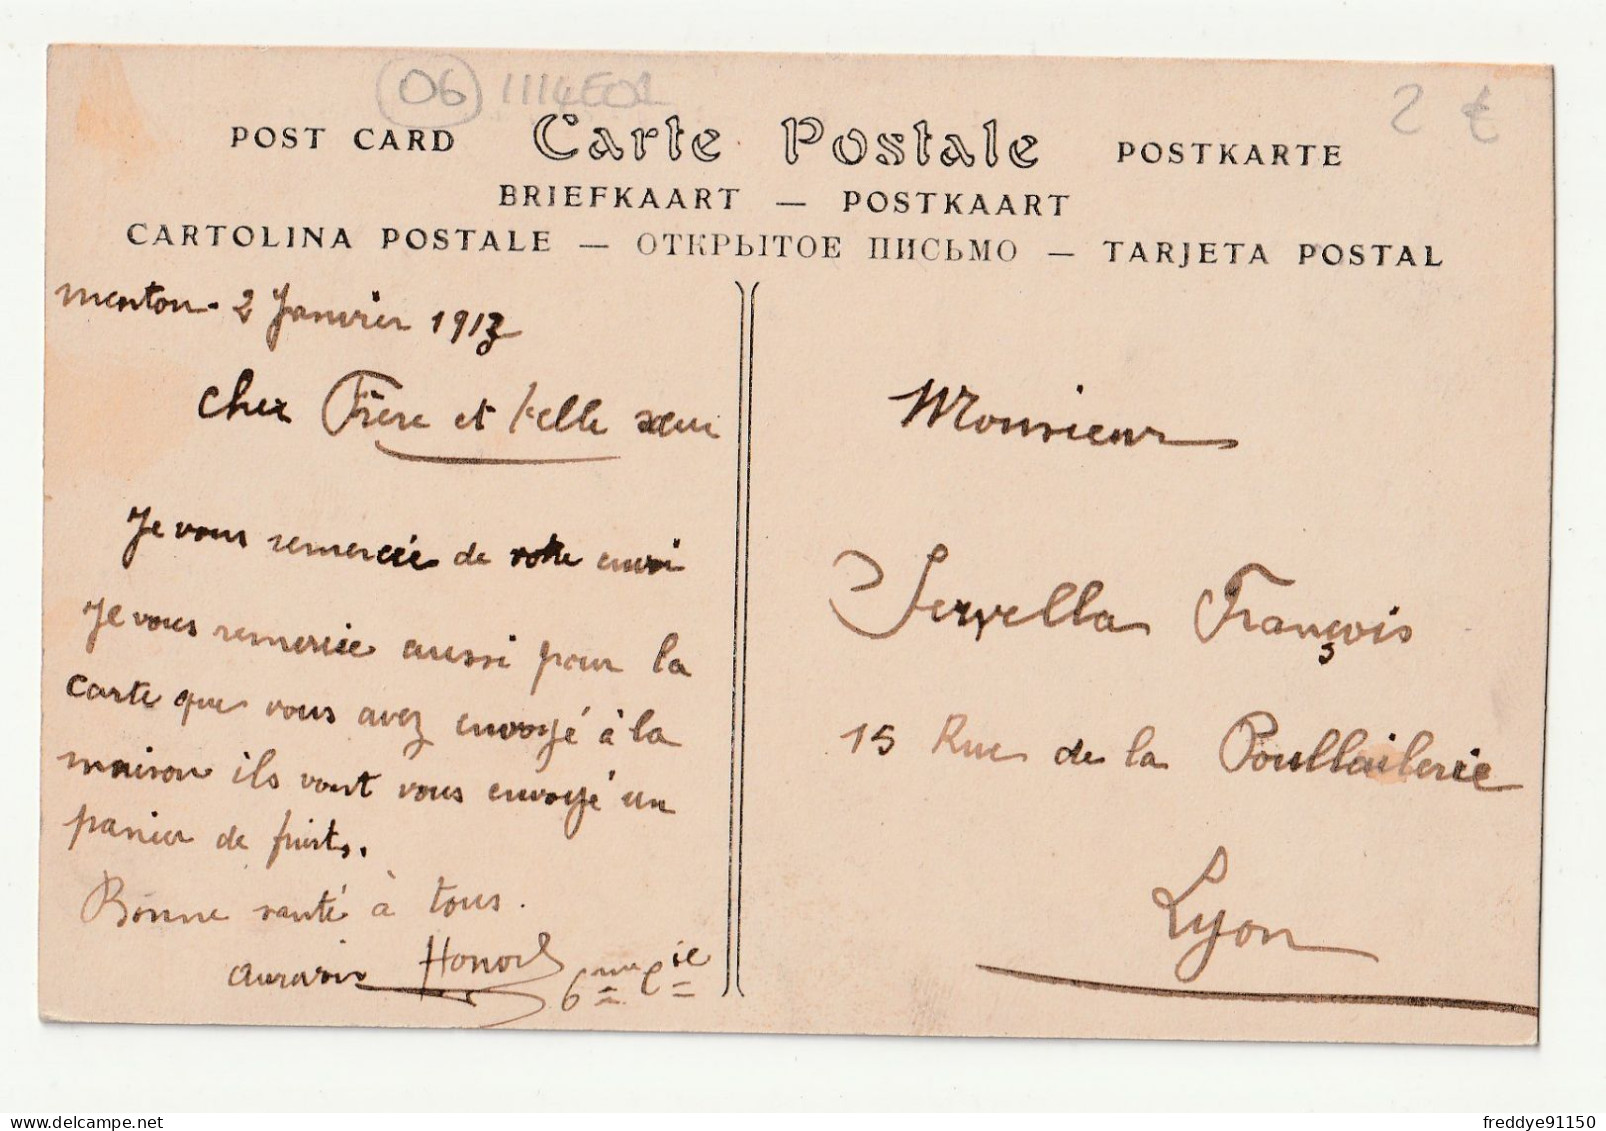 06 1114E02
2 €
POST CARD Carte Postale POSTKARTE
BRIEFKAART — POSTKAART
CARTOLINA POSTALE — ОТКРЫТОЕ ПИСЬМО — TARJETA POSTAL
menton - 2 Janvier 1913
cher Frère et belle sœur
Je vous remercie de votre envoi
Je vous remercie aussi pour la
carte que vous avez envoyé à la
maison ils vont vous envoyé un
panier de fruits.
Bonne santé à tous.
Honoré
6me Cie
Monsieur
François
15 Rue de la Poullailerie
Lyon
freddye91150